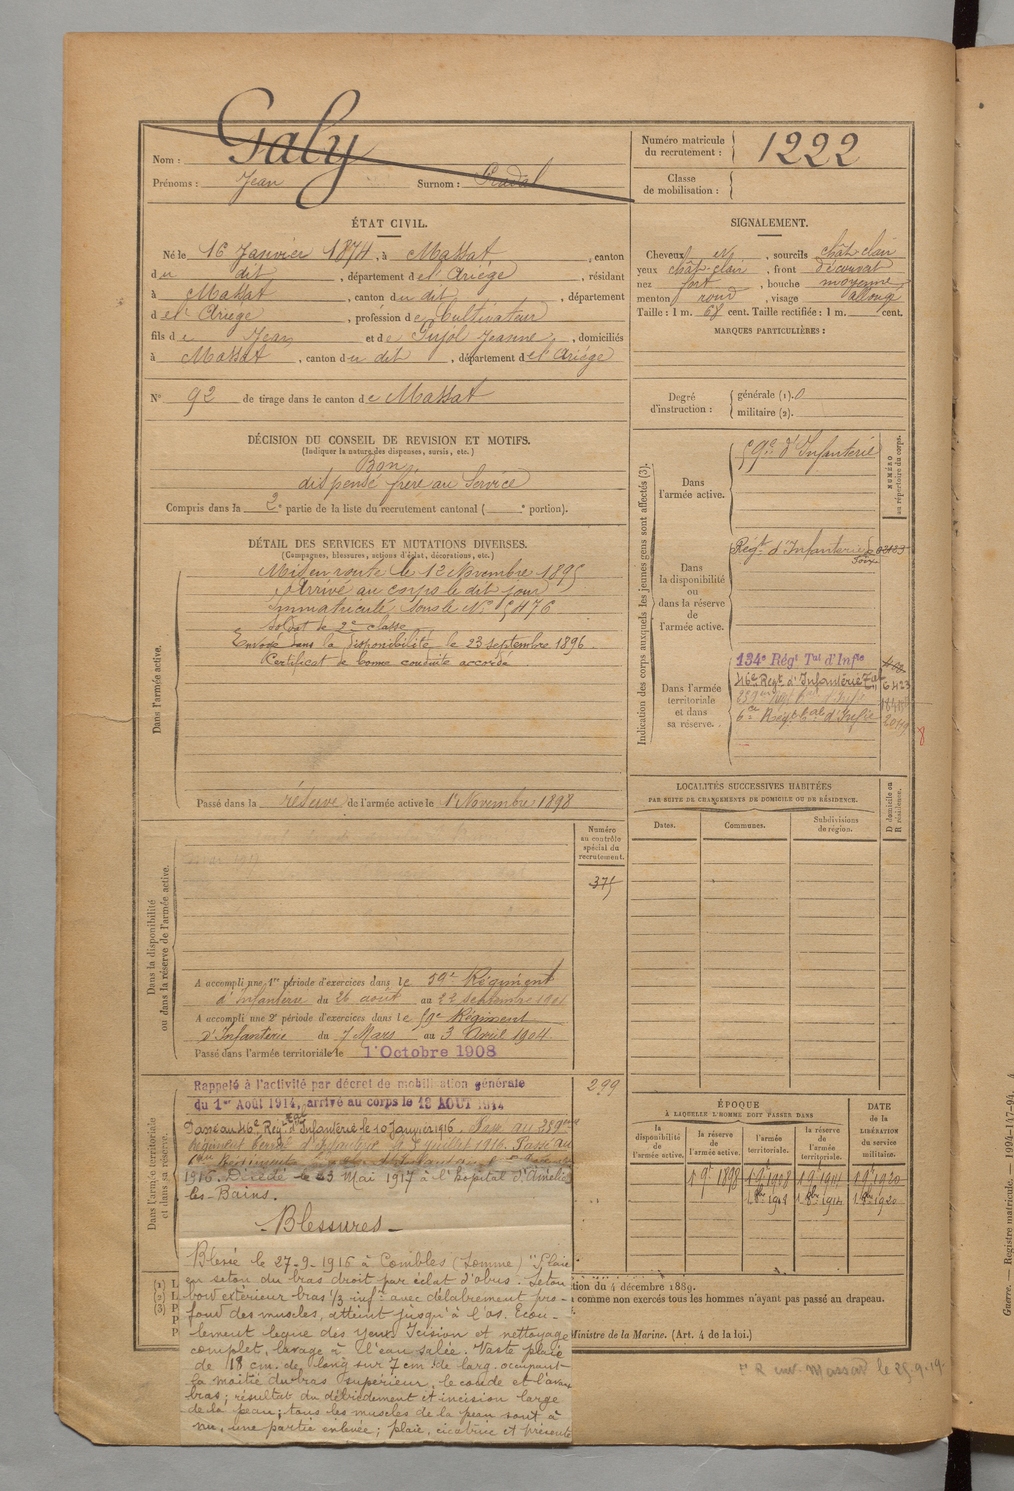 Nom : Galy
Prénoms : Jean Surnom : Radal
Numéro matricule
du recrutement : 1222
Classe
de mobilisation :
ÉTAT CIVIL.
Né le 16 Janvier 1874, à Massat, canton
du dit, département de l'Ariège, résidant
à Massat, canton du dit, département
de l'Ariège, profession de Cultivateur
fils de Jean et de Pujol Jeanne, domiciliés
à Massat, canton du dit, département de l'Ariège
N° 92 de tirage dans le canton de Massat
SIGNALEMENT.
Cheveux N, sourcils chât-clair
yeux chât-clair, front découvert
nez fort, bouche moyenne
menton rond, visage allongé
Taille : 1 m. 68 cent. Taille rectifiée : 1 m. cent.
MARQUES PARTICULIÈRES :
Degré
d'instruction :
générale (1). 0
militaire (2).
DÉCISION DU CONSEIL DE REVISION ET MOTIFS.
(Indiquer la nature des dispenses, sursis, etc.)
Bon
dispensé frère au Service
Compris dans la 2e partie de la liste du recrutement cantonal ( e portion).
DÉTAIL DES SERVICES ET MUTATIONS DIVERSES.
(Campagnes, blessures, actions d'éclat, décorations, etc.)
Dans l'armée active.
Mis en route le 12 Novembre 1895
Arrivé au corps le dit jour
Immatriculé sous le N° 5476
Soldat de 2e classe
Envoyé dans la disponibilité le 23 septembre 1896.
Certificat de bonne conduite accordé
Passé dans la réserve de l'armée active le 1er Novembre 1898
Indication des corps auxquels les jeunes gens sont affectés (3).
NUMÉRO
au répertoire du corps.
Dans
l'armée active.
59e d'Infanterie
Dans
la disponibilité
ou
dans la réserve
de
l'armée active.
Régt d'Infanterie
Foix
Dans l'armée
territoriale
et dans
sa réserve.
134e Régt Tal d'Infie
46e Regt d'Infanterie Tal
6423
6e Régt tal d'Infie
LOCALITÉS SUCCESSIVES HABITÉES
PAR SUITE DE CHANGEMENTS DE DOMICILE OU DE RÉSIDENCE.
Dates.
Communes.
Subdivisions
de région.
D domicile ou
R résidence.
Dans la disponibilité
ou dans la réserve de l'armée active.
Numéro
au contrôle
spécial du
recrutement.
375
A accompli une 1re période d'exercices dans le 59e Régiment
d'Infanterie du 26 août au 22 septembre 1901
A accompli une 2e période d'exercices dans le 59e Régiment
d'Infanterie du 7 Mars au 3 Avril 1904
Passé dans l'armée territoriale le 1er Octobre 1908
Dans l'armée territoriale
et dans sa réserve.
299
Rappelé à l'activité par décret de mobilisation générale
du 1er Août 1914, arrivé au corps le 18 AOUT 1914
Passé au 46e Regt Tal d'Infanterie le 10 janvier 1916. Passé au 289me
Régiment d'Infanterie le juillet 1916. Passé au
Régiment
1916. Décédé le 23 Mai 1917 à l'hopital d'Amélie
les-Bains.
Blessures
Blessé le 27-9-1916 à Combles (Somme) "Plaie
en seton du bras droit par éclat d'obus. Seton
bord extérieur bras 1/3 infr avec délabrement pro-
fond des muscles, atteint jusqu'à l'os. Ecou-
lement des yeux Icision et nettoyage
complet, lavage à l'eau salée. Vaste plaie
de 18 cm. de long sur 7 cm de larg. occupant
la moitié du bras supérieur, le coude et l'avant
bras; résultat du débridement et incision large
de la peau; tous les muscles de la peau sont à
nu, une partie enlevée; plaie, cicatrice et présente
ÉPOQUE
À LAQUELLE L'HOMME DOIT PASSER DANS
la
disponibilité
de
l'armée active.
la réserve
de
l'armée active.
l'armée
territoriale.
la réserve
de
l'armée
territoriale.
DATE
de la
LIBÉRATION
du service
militaire.
(1) L
(2) L
(3) P
P
tion du 4 décembre 1889.
comme non exercés tous les hommes n'ayant pas passé au drapeau.
Ministre de la Marine. (Art. 4 de la loi.)
Guerre. — Registre matricule. — 1994-117-94.